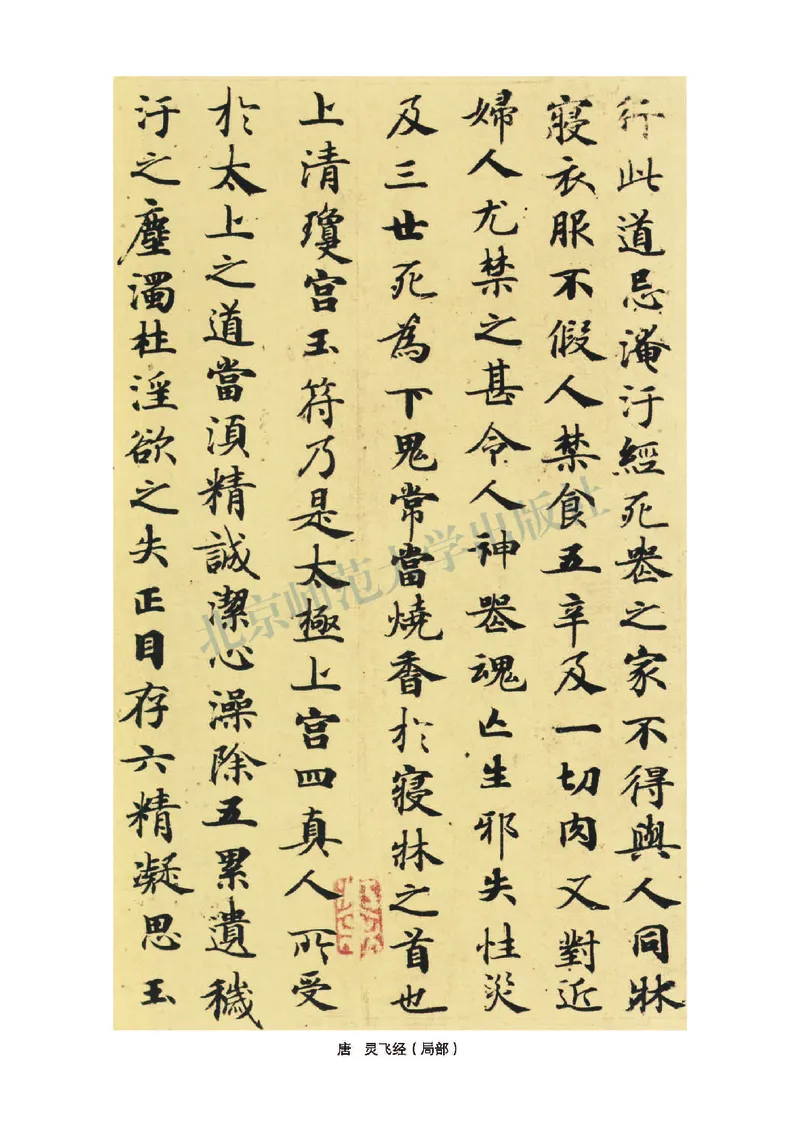 行此道忌淹汙經死丧之家不得與人同牀
寢衣服不假人禁食五辛及一切肉又對近
婦人尤禁之甚令人神丧魂亡生邪失性災
及三世死為下鬼常當燒香於寢牀之首也
上清瓊宮玉符乃是太極上宮四真人所受
於太上之道當須精誠潔心澡除五累遺穢
汙之塵濁杜淫欲之失正目存六精凝思玉
北京师范大学出版社
唐 灵飞经（局部）